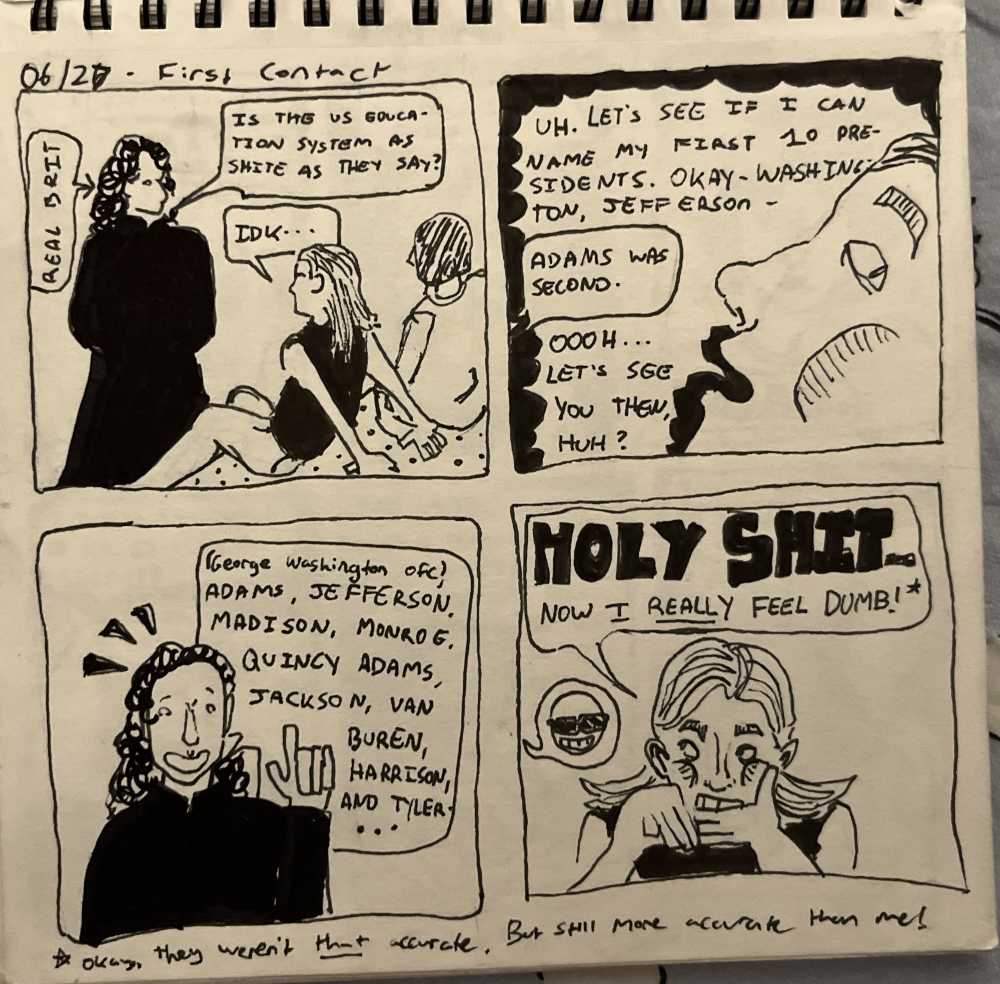 06/27 - First Contact
REAL BRIT
IS THE US EDUCA-
TION SYSTEM AS
SHITE AS THEY SAY?
IDK...
UH. LET'S SEE IF I CAN
NAME MY FIRST 10 PRE-
SIDENTS. OKAY-WASHING-
TON, JEFFERSON -
ADAMS WAS
SECOND.
OOOH...
LET'S SEE
YOU THEN,
HUH?
(George Washington ofc)
ADAMS, JEFFERSON,
MADISON, MONROE,
QUINCY ADAMS,
JACKSON, VAN
BUREN,
HARRISON,
AND TYLER.
...
HOLY SHIT...
NOW I REALLY FEEL DUMB!*
* okay, they weren't that accurate. But still more accurate than me!